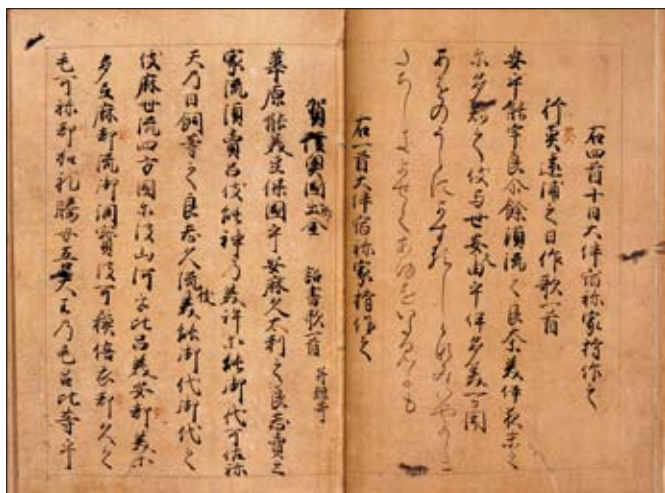 右四首十日大伴宿祢家持作之
行英遠浦之日作歌一首
安乎能宇良尓餘須流之良奈美伊夜末之
尓多知之伎与世久安由乎伊多美可聞
あをのうらによするしらなみいやましに
たちしきよせくあゆをいたみかも
右一首大伴宿祢家持作之
賀陸奥國出金 詔書歌一首 并短哥
葦原能美豆保國乎安麻久太利之良志賣之
家流須賣呂伎能神乃美許等能御代可佐祢
天乃日嗣等之良志久流伎美能御代御代之
伎麻世流四方國尓波山河乎比呂美安都美等
多弖麻都流御調寳波可蘓倍衣都久之
毛可祢都加礼騰母吾大王乃毛呂比等乎